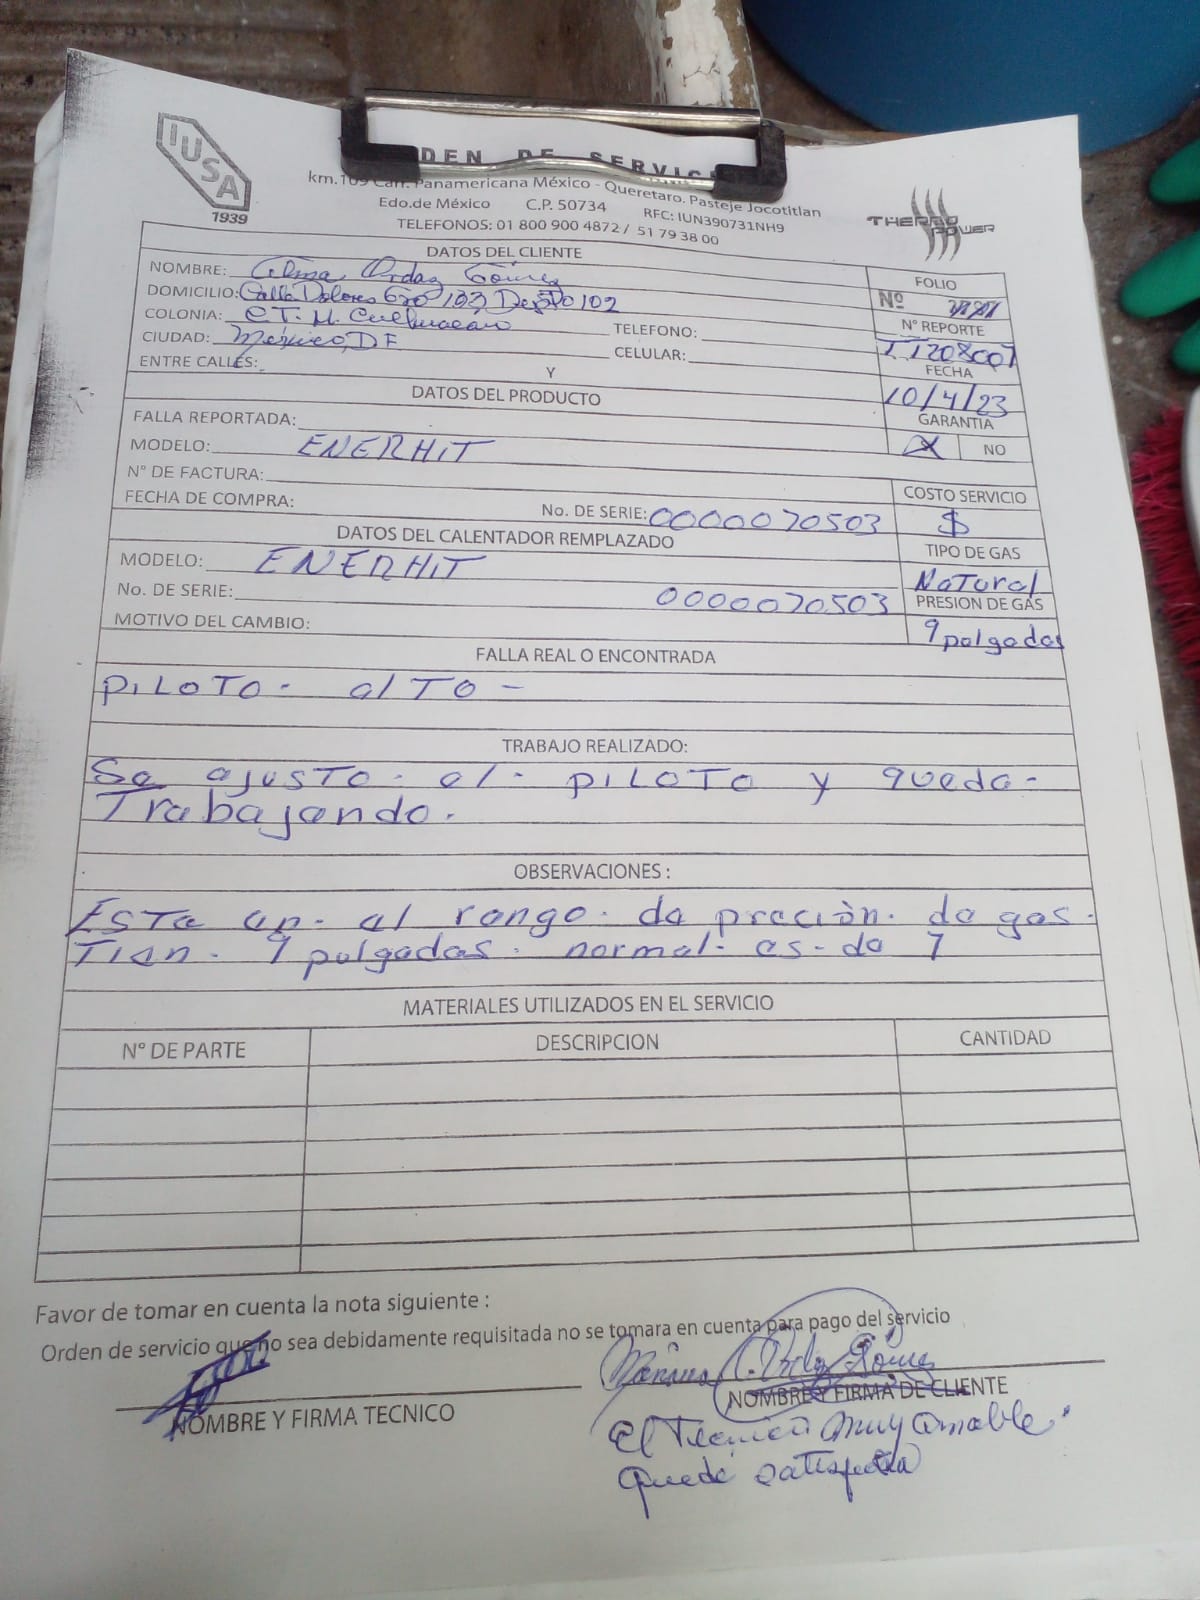 IUSA
1939
DEN DE SERVIC
km.109 Carr. Panamericana México - Queretaro. Pasteje Jocotitlan
Edo.de México C.P. 50734 RFC: IUN390731NH9
TELEFONOS: 01 800 900 4872 / 51 79 38 00
THERMO POWER
DATOS DEL CLIENTE
NOMBRE: Ordaz Gómez
DOMICILIO: Calle Dolores 102
COLONIA: C.T.M. Culhuacan
CIUDAD: México, DF
ENTRE CALLES: Y
TELEFONO:
CELULAR:
FOLIO
Nº
N° REPORTE
11208007
FECHA
10/4/23
GARANTIA
NO
DATOS DEL PRODUCTO
FALLA REPORTADA:
MODELO: ENERHIT
N° DE FACTURA:
FECHA DE COMPRA: No. DE SERIE: 0000070503
COSTO SERVICIO
$
DATOS DEL CALENTADOR REMPLAZADO
MODELO: ENERHIT
No. DE SERIE: 0000070503
MOTIVO DEL CAMBIO:
TIPO DE GAS
Natural
PRESION DE GAS
9 polgadas
FALLA REAL O ENCONTRADA
PILOTO - alTO -
TRABAJO REALIZADO:
Se ajusTo - el - PILOTO y queda -
Trabajando.
OBSERVACIONES :
ESTa en - al rango - de preción - de gas -
Tien - 9 polgadas - normal - es - de 7
MATERIALES UTILIZADOS EN EL SERVICIO
N° DE PARTE DESCRIPCION CANTIDAD
Favor de tomar en cuenta la nota siguiente :
Orden de servicio que no sea debidamente requisitada no se tomara en cuenta para pago del servicio
NOMBRE Y FIRMA TECNICO
Gómez
NOMBRE Y FIRMA DE CLIENTE
El Tecnico muy amable
quede satisfecha